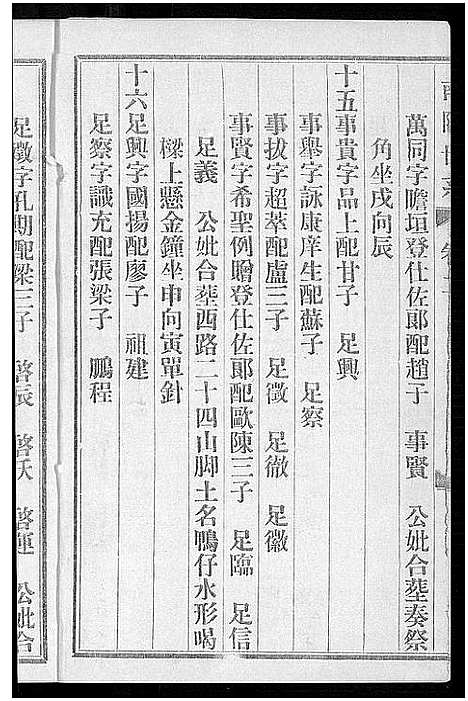 萬同字瞻垣登仕佐郞配趙子　事賢　公妣合塟奏祭
角坐戌向辰
十五事貴字品上配甘子　足興
事舉字詠康庠生配蘇子　足察
事拔字超萃配盧三子　足徵　足徹　足徽
事賢字希聖例贈登仕佐郞配歐陳三子　足臨　足信
足義　公妣合塟西路二十四山脚土名鴨仔水形喝
樑上懸金鐘坐申向寅單針
十六足興字國揚配廖子　祖建
足察字識充配張梁子　鵬程
足徵字孔期配梁三子　啓辰　啓沃　啓運　公妣合